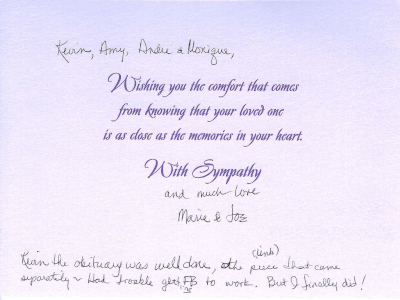 Kevin, Amy, Andre & Monique,
Wishing you the comfort that comes
from knowing that your loved one
is as close as the memories in your heart.
With Sympathy
and much love
Marie & Joe
(link)
Kevin the obituary was well done, the piece that came
separately ~ Had trouble gett. FB to work. But I finally did!